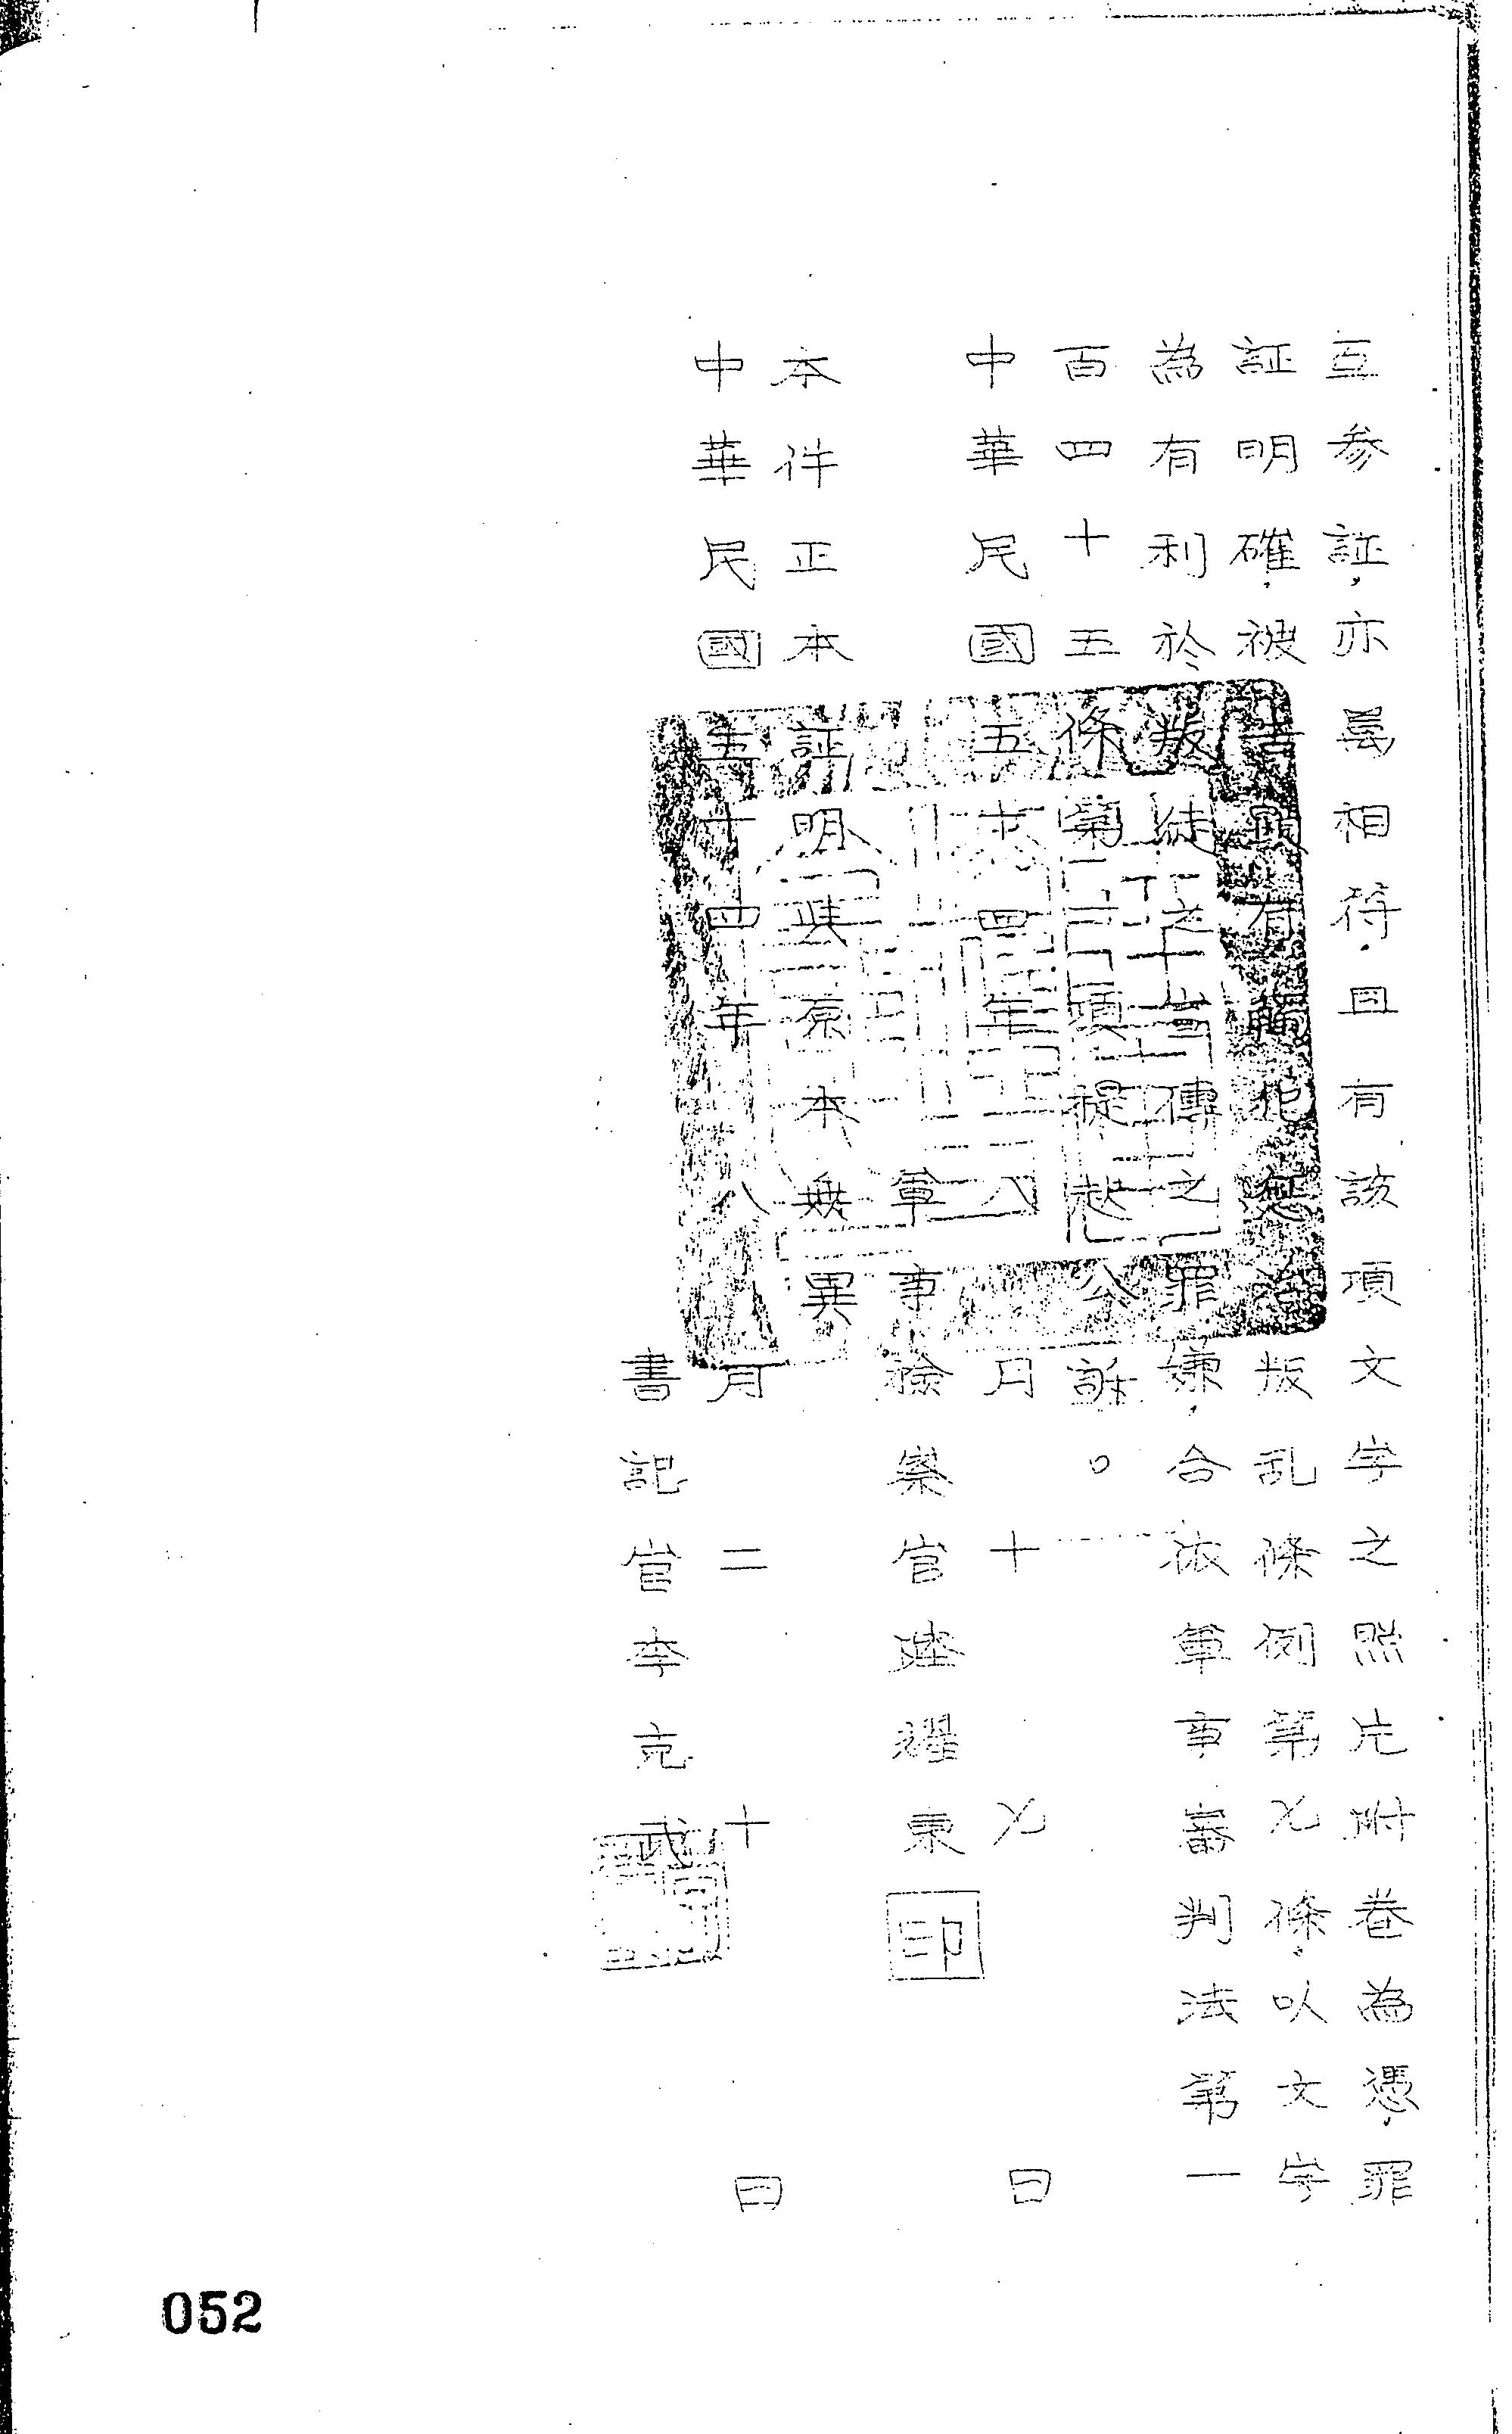 互参証，亦曷相符，且有該項文字之照片附卷為憑，罪
証明確，被告顯有觸犯懲治叛乱條例第七條，以文字
為有利於叛徒之宣傳之罪嫌，合依軍事審判法第一
百四十五條第一項提起公訴。
中華民國五十四年八月十七日
軍事檢察官 耀東 印
本件正本証明與原本無異
中華民國五十四年八月二十日
書記官李克武
052